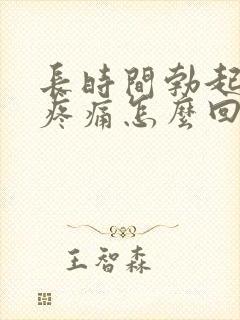 長時間勃起
疼痛怎麼回
王智森